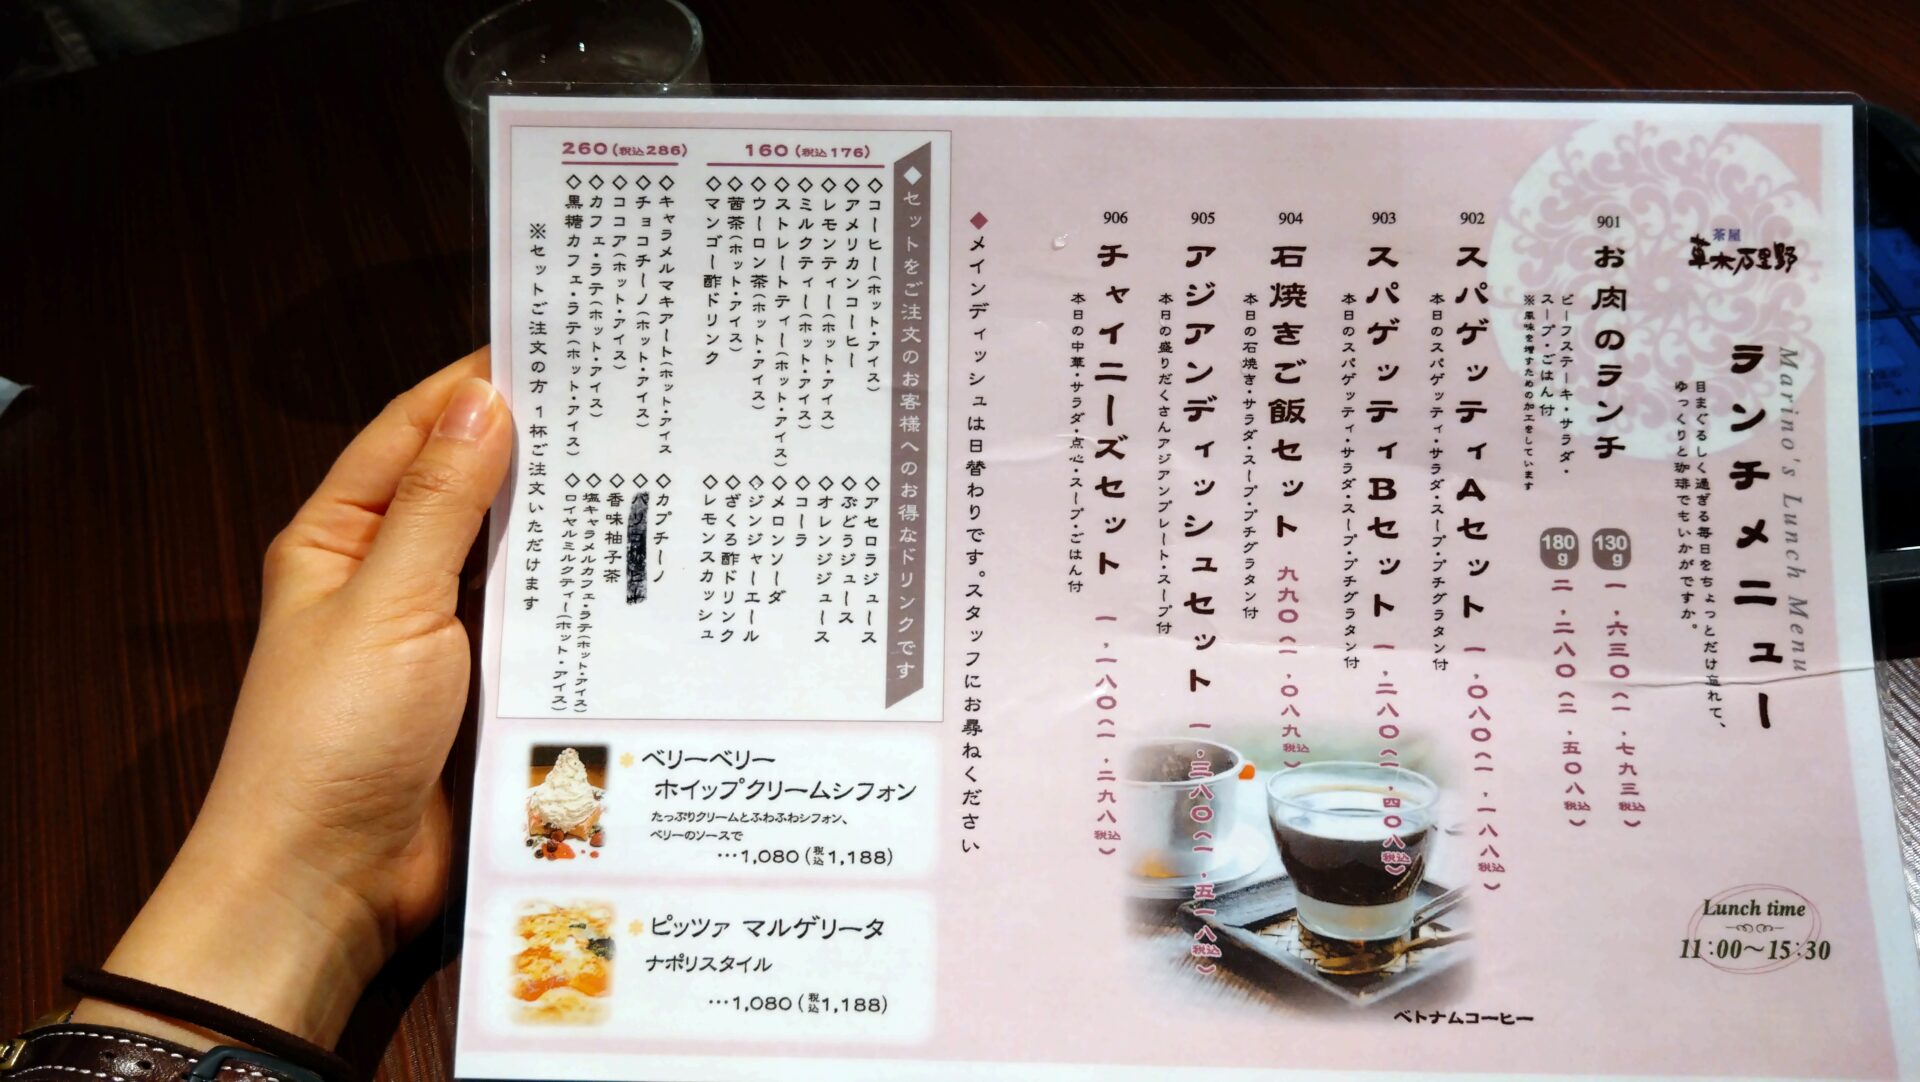 茶屋
草木万里野
Marino's Lunch Menu
ランチメニュー
目まぐるしく過ぎる毎日をちょっとだけ忘れて、
ゆっくりと珈琲でもいかがですか。
901
お肉のランチ
130g 一,六三〇(一.七九三税込)
180g 二,二八〇(二.五〇八税込)
ビーフステーキ・サラダ・
スープ・ごはん付
※風味を増すための加工をしています
902
スパゲッティAセット 一,〇八〇(一.一八八税込)
本日のスパゲッティ・サラダ・スープ・プチグラタン付
903
スパゲッティBセット 一,二八〇(一.四〇八税込)
本日のスパゲッティ・サラダ・スープ・プチグラタン付
904
石焼きご飯セット 九九〇(一.〇八九税込)
本日の石焼き・サラダ・スープ・プチグラタン付
905
アジアンディッシュセット 一,三八〇(一.五一八税込)
本日の盛りだくさんアジアンプレート・スープ付
906
チャイニーズセット 一,一八〇(一.二九八税込)
本日の中華・サラダ・点心・スープ・ごはん付
◆メインディッシュは日替わりです。スタッフにお尋ねください
Lunch time
11:00〜15:30
ベトナムコーヒー
◆セットをご注文のお客様へのお得なドリンクです
160(税込176)
◇コーヒー(ホット・アイス)
◇アメリカンコーヒー
◇レモンティー(ホット・アイス)
◇ミルクティー(ホット・アイス)
◇ストレートティー(ホット・アイス)
◇ウーロン茶(ホット・アイス)
◇茜茶(ホット・アイス)
◇マンゴー酢ドリンク
◇アセロラジュース
◇ぶどうジュース
◇オレンジジュース
◇コーラ
◇メロンソーダ
◇ジンジャーエール
◇ざくろ酢ドリンク
◇レモンスカッシュ
260(税込286)
◇キャラメルマキアート(ホット・アイス
◇チョコチーノ(ホット・アイス)
◇ココア(ホット・アイス)
◇カフェ・ラテ(ホット・アイス)
◇黒糖カフェ・ラテ(ホット・アイス)
◇カプチーノ
◇香味柚子茶
◇塩キャラメルカフェ・ラテ(ホット・アイス)
◇ロイヤルミルクティー(ホット・アイス)
※セットご注文の方 1杯ご注文いただけます
ベリーベリー
ホイップクリームシフォン
たっぷりクリームとふわふわシフォン、
ベリーのソースで
…1,080(税込1,188)
ピッツァ マルゲリータ
ナポリスタイル
…1,080(税込1,188)